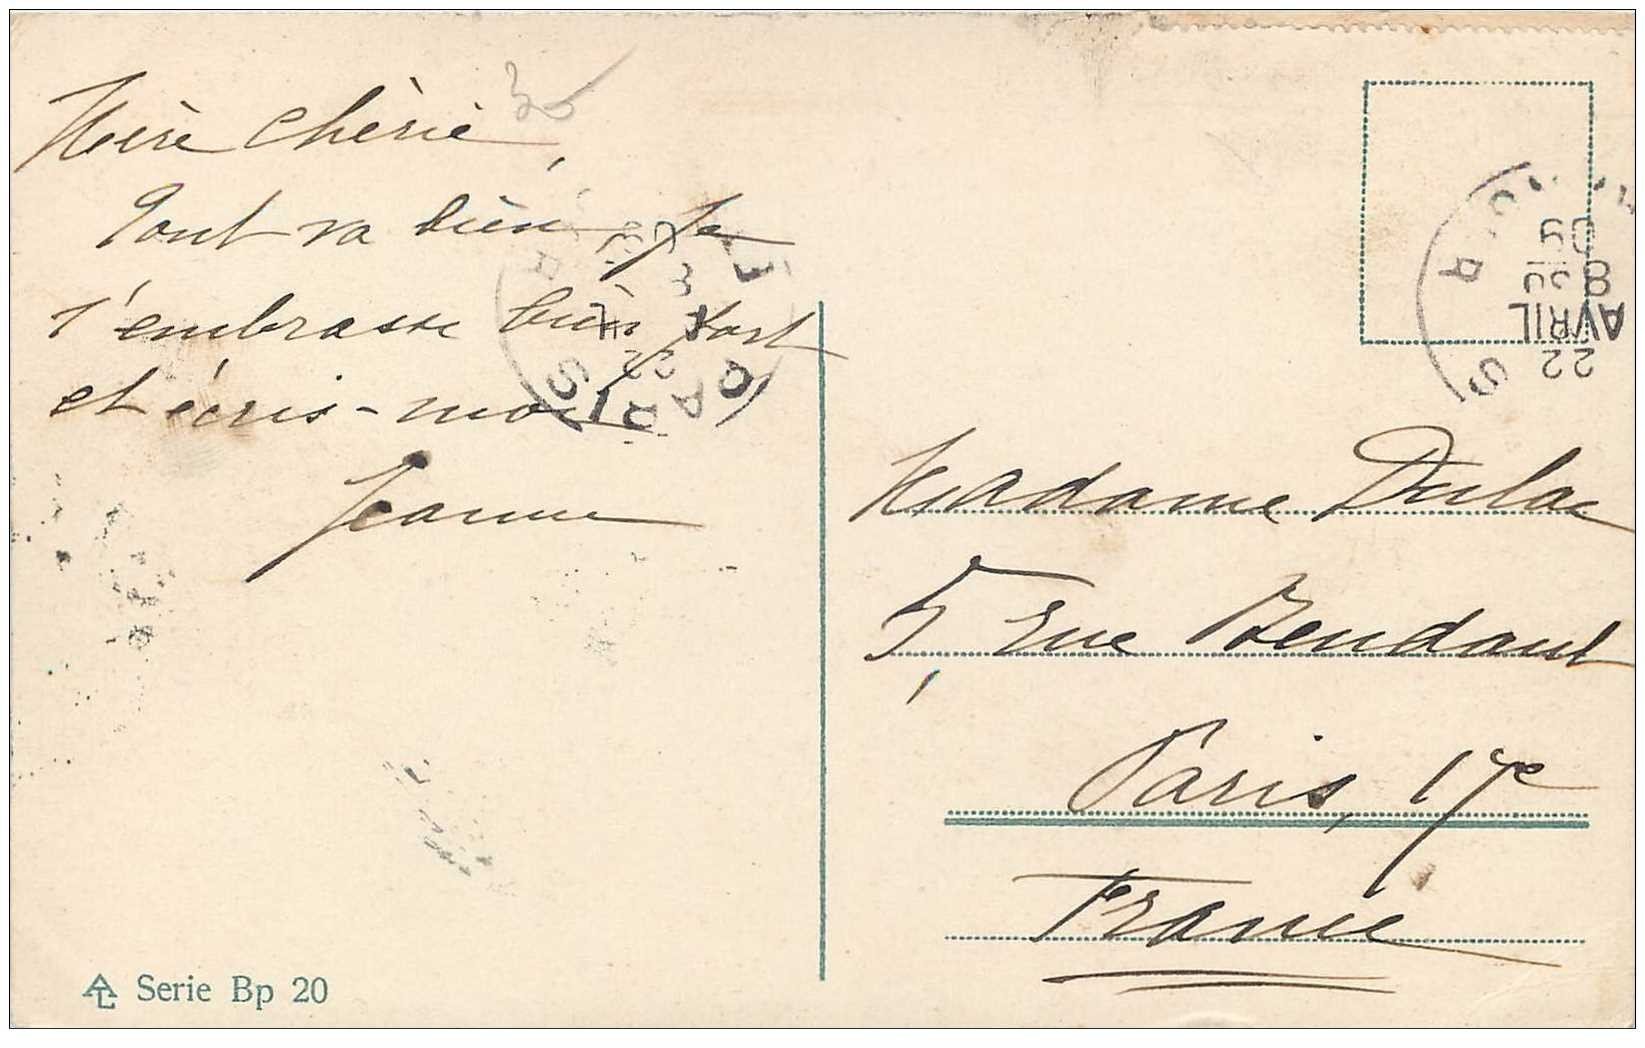 Mère Chérie,
Tout va bien. Je
t'embrasse bien fort
et écris-moi
Jeanne
Madame Dulac
5, rue Bendant
Paris, 17e
France
Serie Bp 20
PARIS
22
AVRIL
8 30
09
PARIS